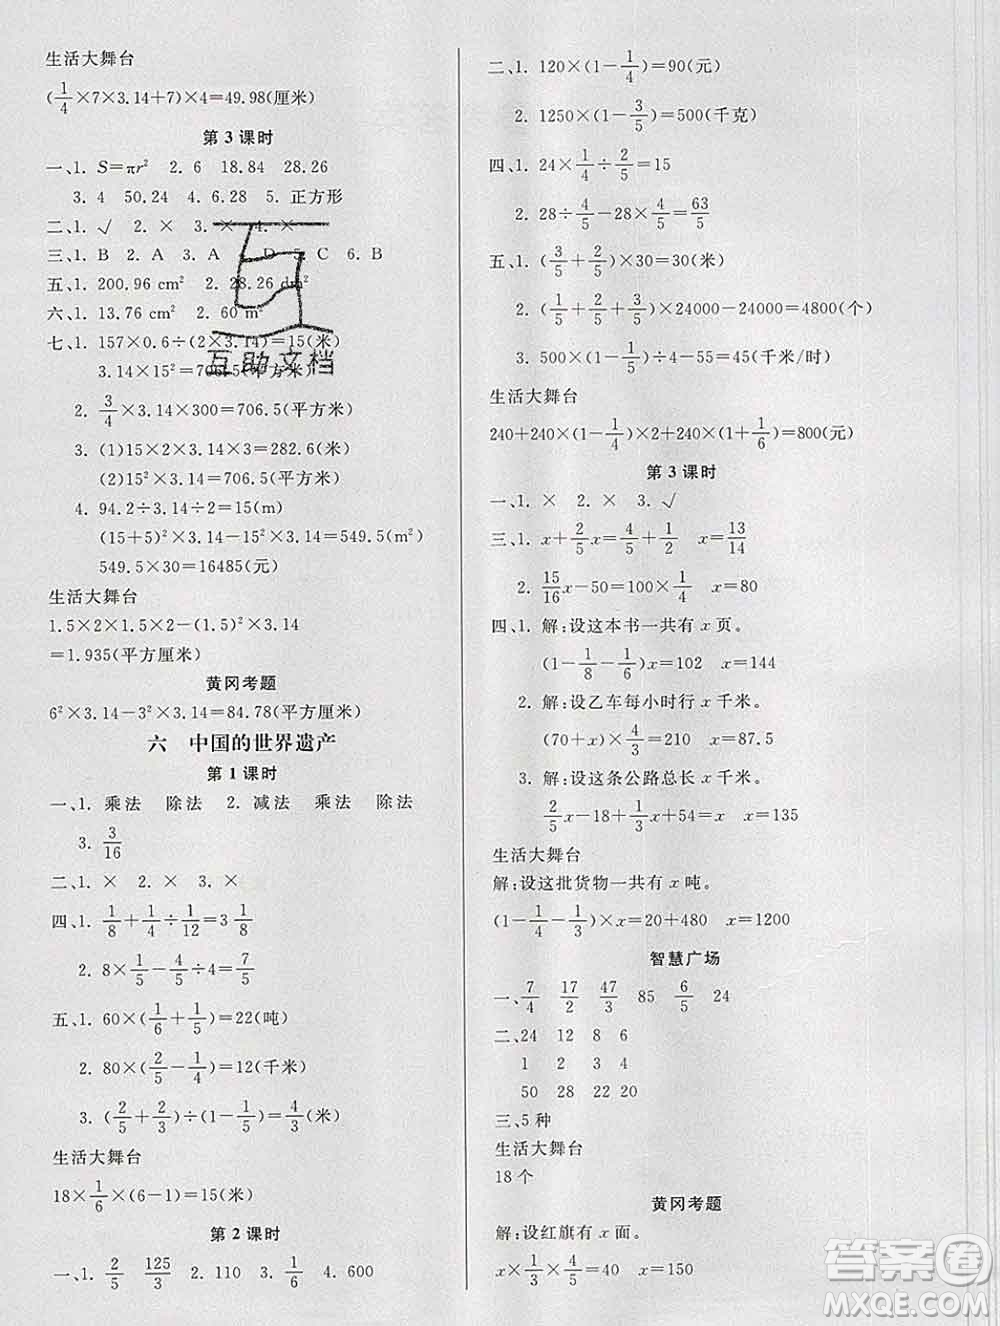 生活大舞台
(1/4×7×3.14+7)×4=49.98(厘米)
第3课时
一、1. S=πr² 2. 6 18.84 28.26
3. 4 50.24 4. 6.28 5. 正方形
二、1. √ 2. × 3. × 4. ×
三、1. B 2. A 3. A 4. D 5. C 6. B
五、1. 200.96 cm² 2. 28.26 dm²
六、1. 13.76 cm² 2. 60 m²
七、1. 157×0.6÷(2×3.14)=15(米)
3.14×15²=706.5(平方米)
2. 3/4×3.14×300=706.5(平方米)
3. (1)15×2×3.14×3=282.6(米)
(2)15²×3.14=706.5(平方米)
4. 94.2÷3.14÷2=15(m)
(15+5)²×3.14-15²×3.14=549.5(m²)
549.5×30=16485(元)
生活大舞台
1.5×2×1.5×2-(1.5)²×3.14
=1.935(平方厘米)
黄冈考题
6²×3.14-3²×3.14=84.78(平方厘米)
六 中国的世界遗产
第1课时
一、1. 乘法 除法 2. 减法 乘法 除法
3. 3/16
二、1. × 2. × 3. ×
四、1. 1/8+1/4÷1/12=3 1/8
2. 8×1/5-4/5÷4=7/5
五、1. 60×(1/6+1/5)=22(吨)
2. 80×(2/5-1/4)=12(千米)
3. (2/5+2/3)÷(1-1/5)=4/3(米)
生活大舞台
18×1/6×(6-1)=15(米)
第2课时
一、1. 2/5 125/3 2. 110 3. 1/6 4. 600
二、1. 120×(1-1/4)=90(元)
2. 1250×(1-3/5)=500(千克)
四、1. 24×1/4÷2/5=15
2. 28÷4/5-28×4/5=63/5
五、1. (1/5+4/5)×30=30(米)
2. (1/5+2/5+3/5)×24000-24000=4800(个)
3. 500×(1-1/5)÷4-55=45(千米/时)
生活大舞台
240+240×(1-1/4)×2+240×(1+1/6)=800(元)
第3课时
一、1. × 2. × 3. √
三、1. x+2/5x=4/5+1/2 x=13/14
2. 15/16x-50=100×1/4 x=80
四、1. 解:设这本书一共有 x 页。
(1-1/8-1/6)x=102 x=144
2. 解:设乙车每小时行 x 千米。
(70+x)×4/3=210 x=87.5
3. 解:设这条公路总长 x 千米。
2/5x-18+1/3x+54=x x=135
生活大舞台
解:设这批货物一共有 x 吨。
(1-1/4-1/3)×x=20+480 x=1200
智慧广场
一、7/4 17/2 47/3 85 6/5 24
二、24 12 8 6
1 2 3 4
50 28 22 20
三、5种
生活大舞台
18个
黄冈考题
解:设红旗有 x 面。
x×1/3×4/5=40 x=150
互助文档
答案圈
MXQE.COM